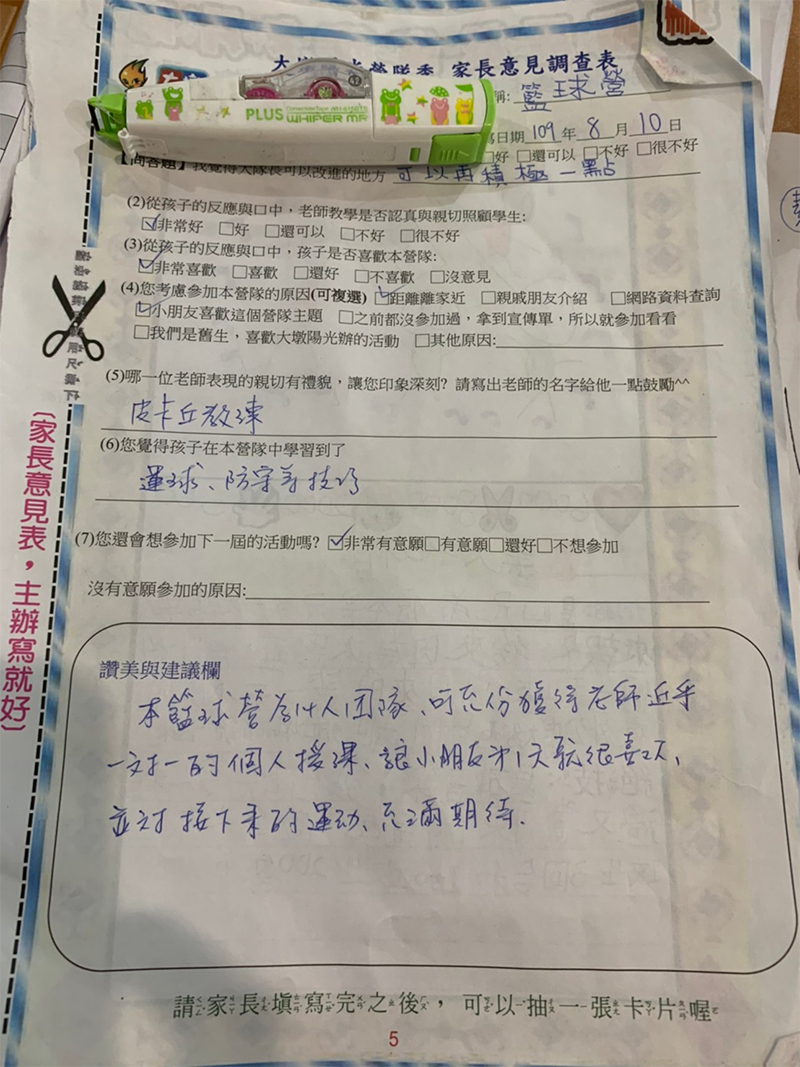 家長意見調查表
籃球營
PLUS WHIPER MR
日期 109 年 8 月 10 日
□好 □還可以 □不好 □很不好
【問答題】我覺得大隊長可以改進的地方 可以再積極一點
(2)從孩子的反應與口中，老師教學是否認真與親切照顧學生:
☑非常好 □好 □還可以 □不好 □很不好
(3)從孩子的反應與口中，孩子是否喜歡本營隊:
☑非常喜歡 □喜歡 □還好 □不喜歡 □沒意見
(4)您考慮參加本營隊的原因(可複選) ☑距離離家近 □親戚朋友介紹 □網路資料查詢
☑小朋友喜歡這個營隊主題 □之前都沒參加過，拿到宣傳單，所以就參加看看
□我們是舊生，喜歡大墩陽光辦的活動 □其他原因:
(5)哪一位老師表現的親切有禮貌，讓您印象深刻? 請寫出老師的名字給他一點鼓勵^^
皮卡丘教練
(6)您覺得孩子在本營隊中學習到了
運球、防守等技巧
(7)您還會想參加下一屆的活動嗎? ☑非常有意願□有意願□還好□不想參加
沒有意願參加的原因:
讚美與建議欄
本籃球營為14人團隊、可充份獲得老師近乎
一对一的個人授課、讓小朋友第1天就很喜欢,
並对接下來的運动、充滿期待.
(家長意見表，主辦寫就好)
請家長填寫完之後，可以抽一張卡片喔
5